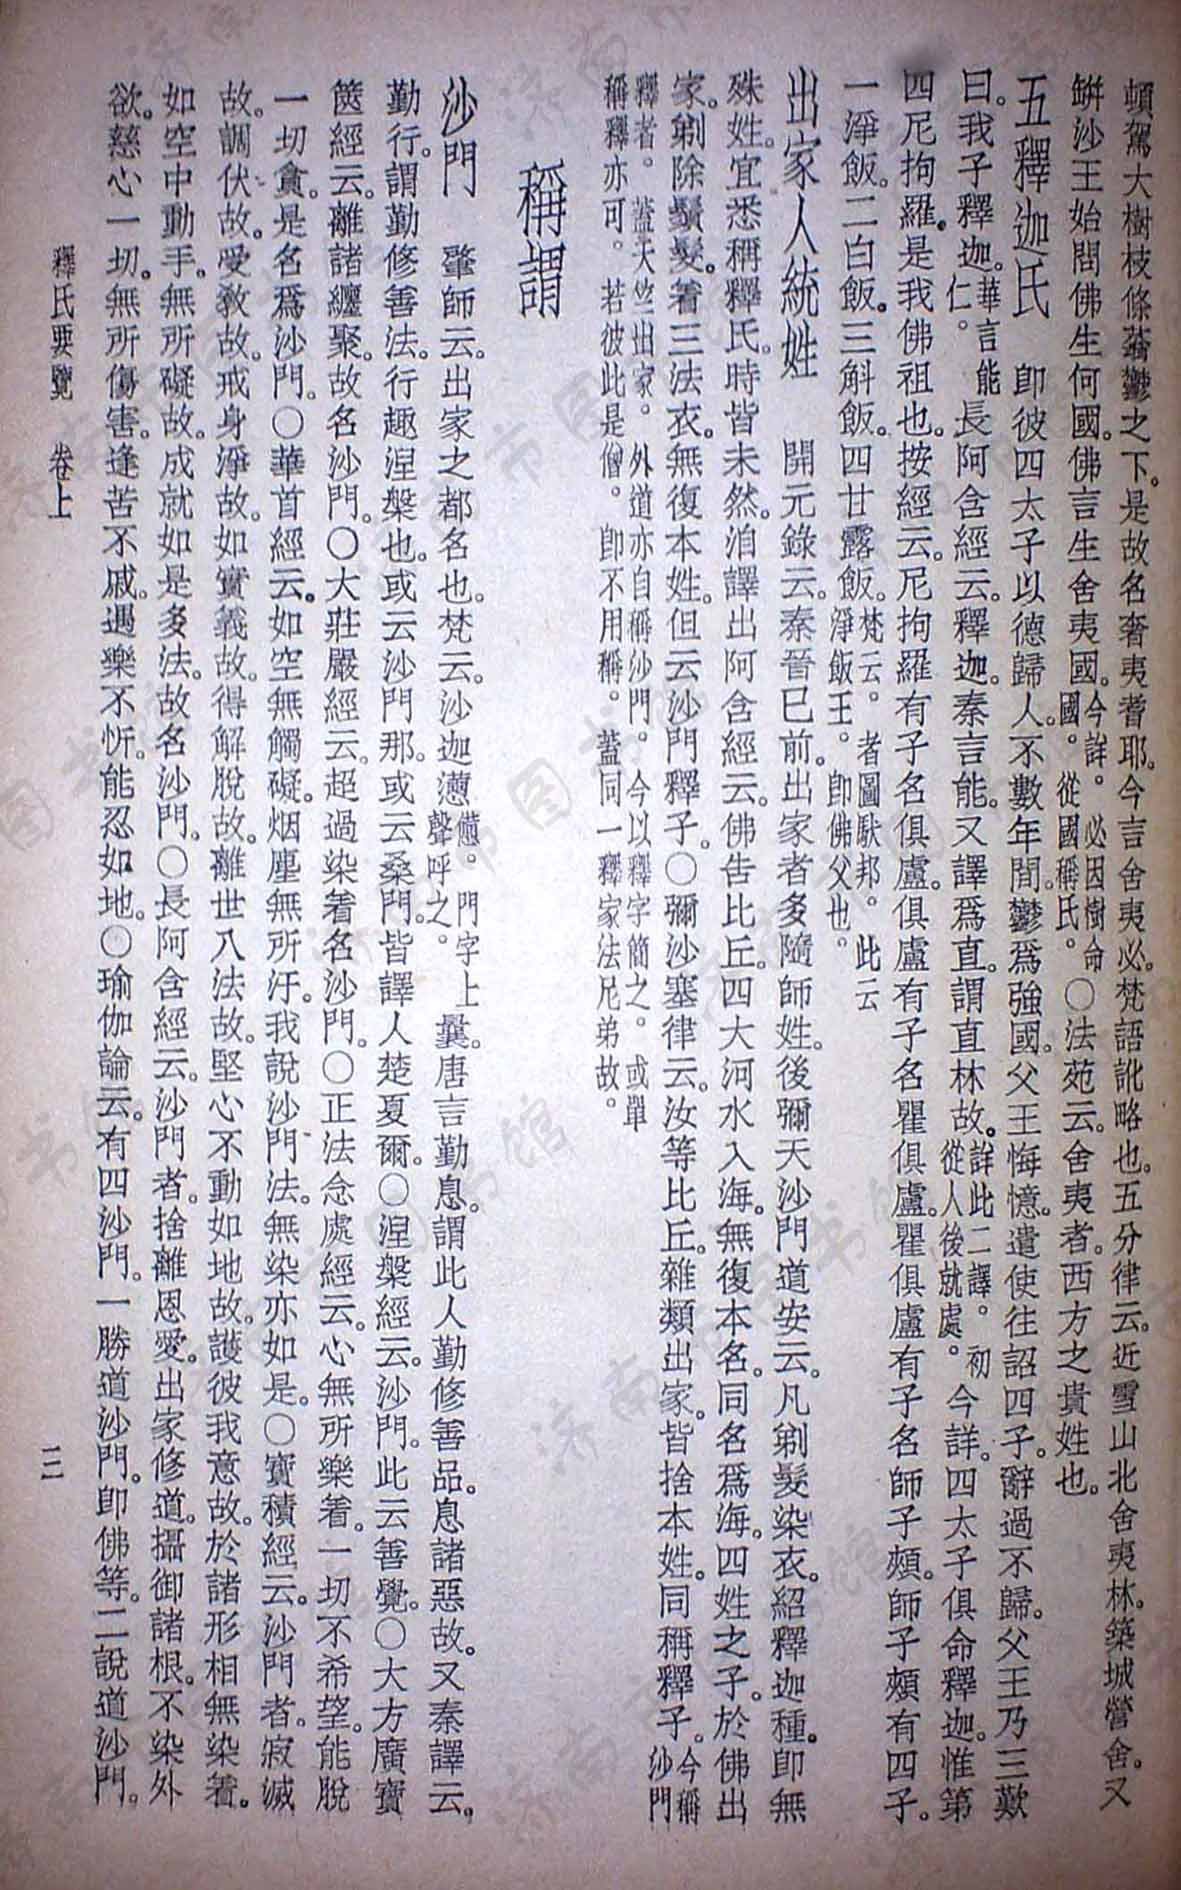 頓駕大樹枝條蓊鬱之下。是故名奢夷耆耶。今言舍夷必。梵語訛略也。五分律云。近雪山北舍夷林。築城營舍。又
缾沙王始問佛生何國。佛言生舍夷國。今詳。必因樹命國。從國稱氏。○法苑云。舍夷者。西方之貴姓也。
五釋迦氏 卽彼四太子以德歸人。不數年間。鬱爲強國。父王悔憶。遣使往詔四子。辭過不歸。父王乃三歎
曰。我子釋迦。華言能仁。長阿含經云。釋迦。秦言能。又譯爲直。謂直林故。詳此二譯。初從人後就處。今詳。四太子俱命釋迦。惟第
四尼拘羅。是我佛祖也。按經云。尼拘羅有子名俱盧。俱盧有子名瞿俱盧。瞿俱盧有子名師子頰。師子頰有四子。
一淨飯。二白飯。三斛飯。四甘露飯。梵云。者圖馱邦。此云淨飯王。卽佛父也。
出家人統姓 開元錄云。秦晉已前。出家者多隨師姓。後彌天沙門道安云。凡剃髮染衣。紹釋迦種。卽無
殊姓。宜悉稱釋氏。時皆未然。洎譯出阿含經云。佛告比丘。四大河水入海。無復本名。同名爲海。四姓之子。於佛出
家。剃除鬚髮。着三法衣。無復本姓。但云沙門釋子。○彌沙塞律云。汝等比丘。雜類出家。皆捨本姓。同稱釋子。今稱沙門
釋者。蓋天竺出家。外道亦自稱沙門。今以釋字簡之。或單稱釋亦可。若彼此是僧。卽不用稱。蓋同一釋家法兄弟故。
稱謂
沙門 肇師云。出家之都名也。梵云。沙迦懣懣。門字上聲呼之。曩。唐言勤息。謂此人勤修善品。息諸惡故。又秦譯云。
勤行。謂勤修善法。行趣涅槃也。或云沙門那。或云桑門。皆譯人楚夏爾。○涅槃經云。沙門。此云善覺。○大方廣寶
篋經云。離諸纏聚。故名沙門。○大莊嚴經云。超過染着名沙門。○正法念處經云。心無所樂着。一切不希望。能脫
一切貪。是名爲沙門。○華首經云。如空無觸礙。烟塵無所汙。我說沙門法。無染亦如是。○寶積經云。沙門者。寂滅
故。調伏故。受敎故。戒身淨故。如實義故。得解脫故。離世八法故。堅心不動如地故。護彼我意故。於諸形相無染着。
如空中動手。無所礙故。成就如是多法。故名沙門。○長阿含經云。沙門者。捨離恩愛。出家修道。攝御諸根。不染外
欲。慈心一切。無所傷害。逢苦不戚。遇樂不忻。能忍如地。○瑜伽論云。有四沙門。一勝道沙門。卽佛等。二說道沙門。
釋氏要覽 卷上
三